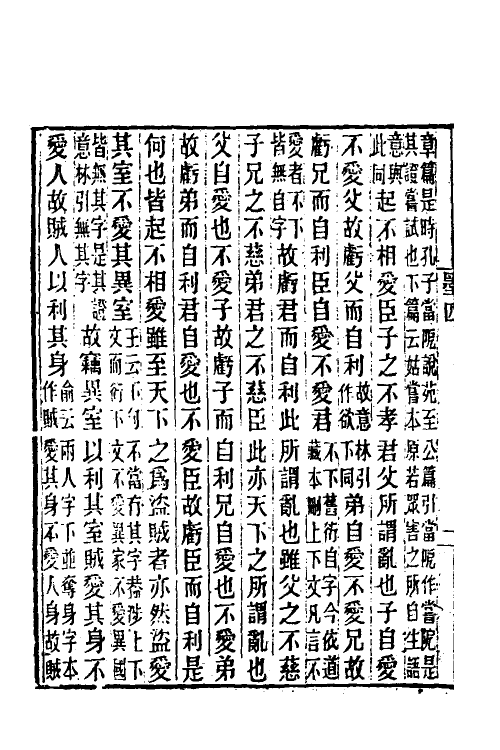 章篇是時孔子當阨說苑至公篇引當阨作嘗阨是
其證嘗試也下篇云姑嘗本原若眾害之所自生語
意與此同起不相愛臣子之不孝君父所謂亂也子自愛
不愛父故虧父而自利故意林引作欲下同弟自愛不愛兄故
虧兄而自利臣自愛不愛君不下舊衍自字今依道藏本刪上下文凡言不
愛者不下皆無自字故虧君而自利此所謂亂也雖父之不慈
子兄之不慈弟君之不慈臣此亦天下之所謂亂也
父自愛也不愛子故虧子而自利兄自愛也不愛弟
故虧弟而自利君自愛也不愛臣故虧臣而自利是
何也皆起不相愛雖至天下之爲盜賊者亦然盜愛
其室不愛其異室王云下句不當有其字葢涉上下文而衍下文不愛異家不愛異國
皆無其字是其證意林引無其字故竊異室以利其室賊愛其身不
愛人故賊人以利其身俞云兩人字下並奪身字本作賊愛其身不愛人身故賊
墨四